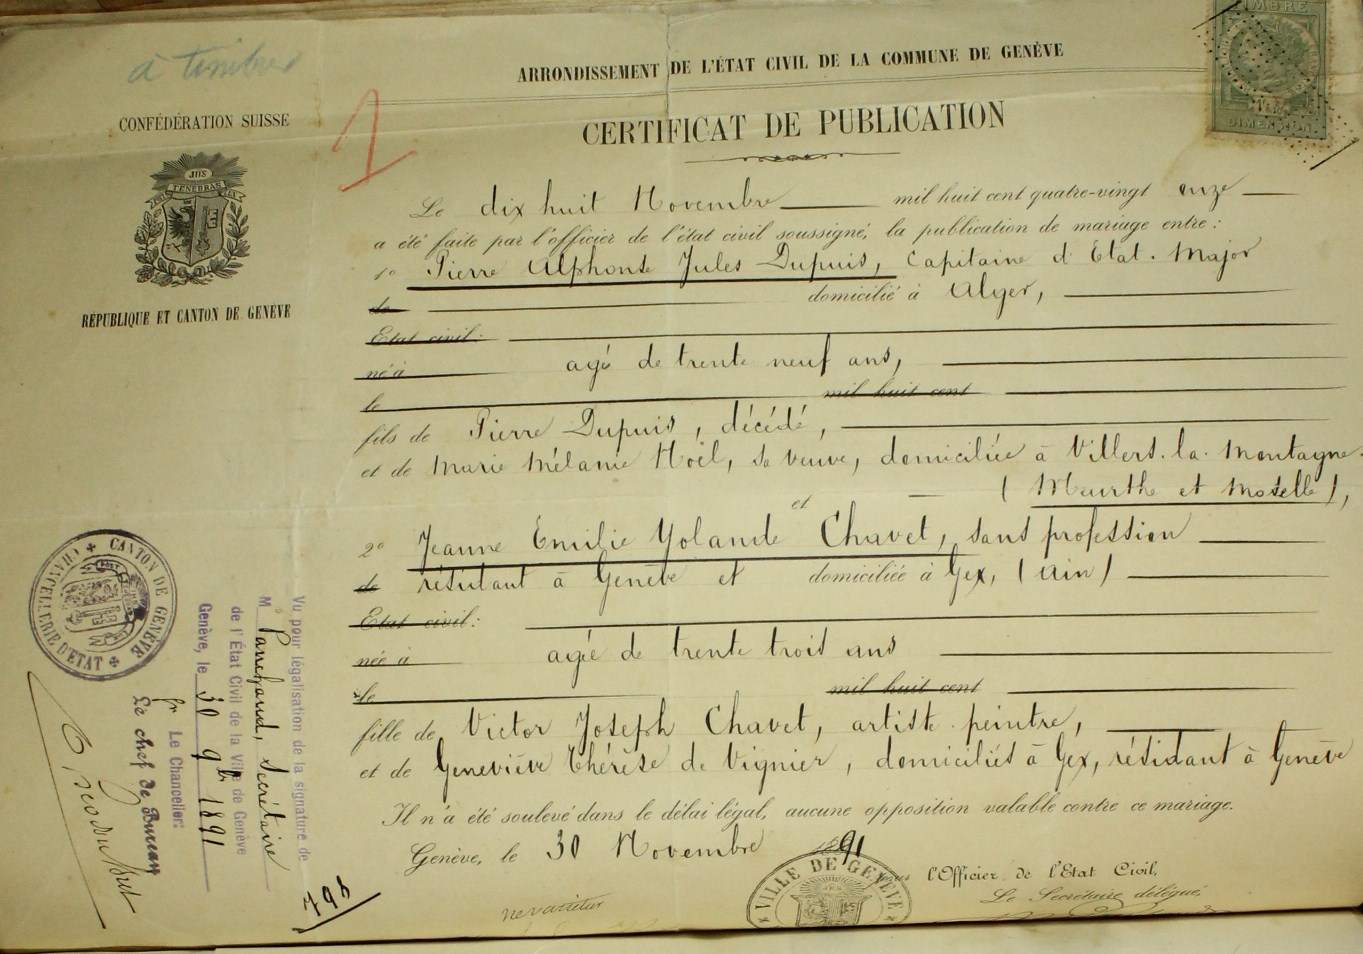 à timbrer
CONFÉDÉRATION SUISSE
JUS
TENEBRAS
POST LUX
RÉPUBLIQUE ET CANTON DE GENÈVE
1
ARRONDISSEMENT DE L'ÉTAT CIVIL DE LA COMMUNE DE GENÈVE
CERTIFICAT DE PUBLICATION
TIMBRE
DIMENSION
Le dix huit Novembre mil huit cent quatre-vingt onze
a été faite par l'officier de l'état civil soussigné, la publication de mariage entre:
1º Pierre Alphonse Jules Dupuis, Capitaine d'Etat-Major
de domicilié à Alger,
Etat civil:
né à agé de trente neuf ans,
le mil huit cent
fils de Pierre Dupuis, décédé,
et de Marie Mélanie Noël, sa veuve, domiciliée à Villers-la-Montagne
(Meurthe et Moselle),
et
2º Jeanne Emilie Yolande Chavet, sans profession
de résidant à Genève et domiciliée à Gex, (Ain)
Etat civil:
née à agée de trente trois ans
le mil huit cent
fille de Victor Joseph Chavet, artiste peintre,
et de Geneviève Thérèse de Vignier, domiciliés à Gex, résidant à Genève
Il n'a été soulevé dans le délai légal, aucune opposition valable contre ce mariage.
Genève, le 30 Novembre 1891
l'Officier de l'Etat Civil,
Le Secrétaire délégué,
VILLE DE GENÈVE
ne varietur
CANTON DE GENÈVE
CHANCELLERIE D'ETAT
Vu pour légalisation de la signature de
M. Panchaud, Secrétaire
de l'État Civil de la Ville de Genève
Genève, le 30 9bre 1891
Le Chancelier:
Le chef de Bureau
798